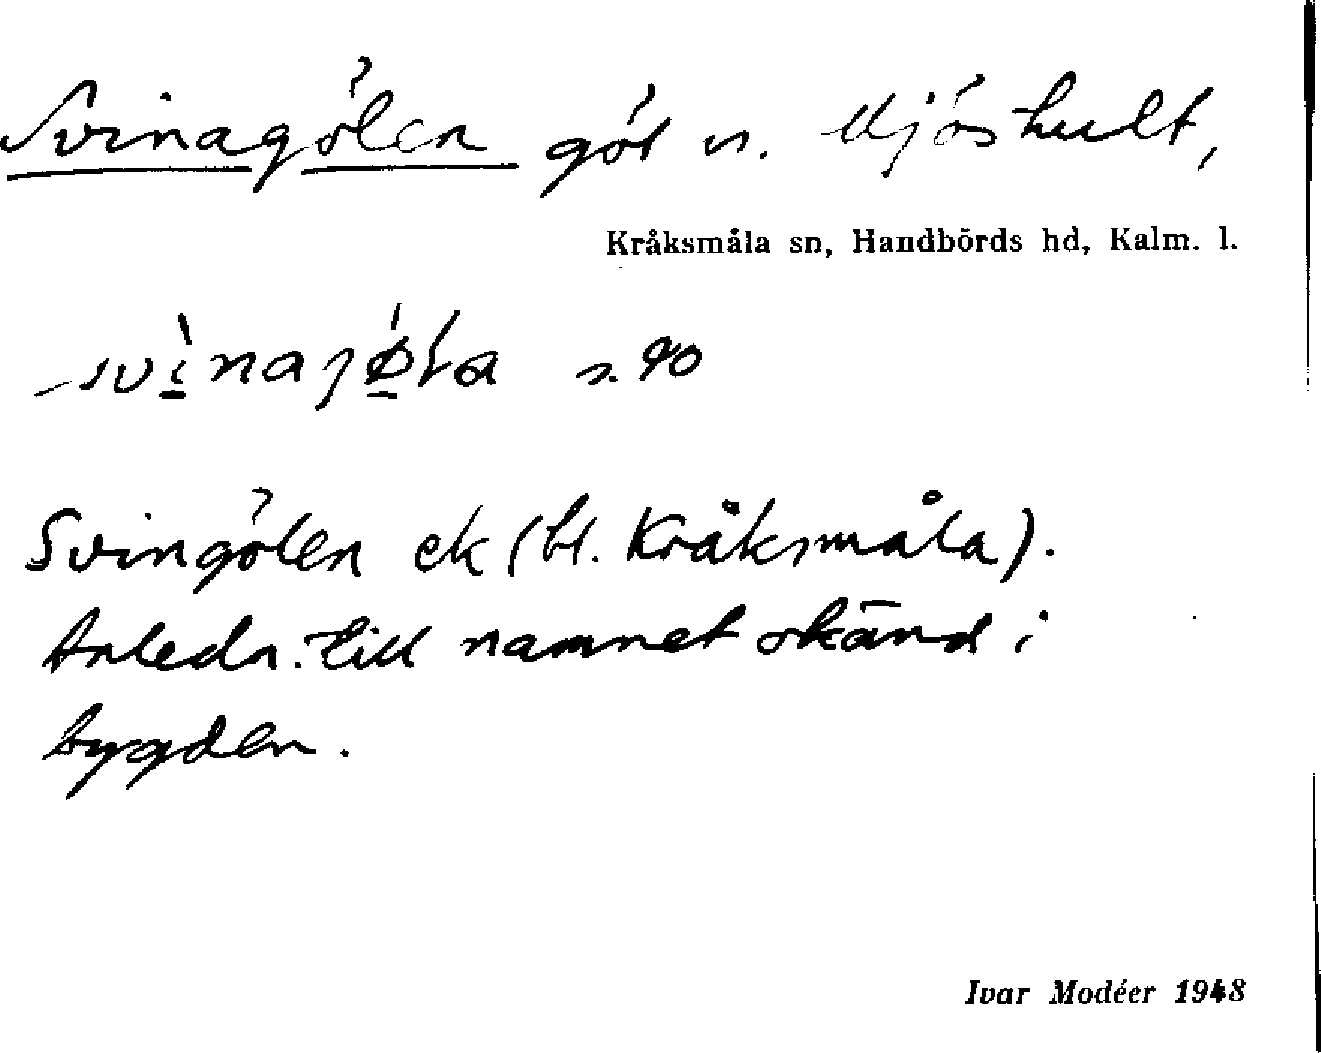 Svinagölen göl n. Mjöshult,
Kråksmåla sn, Handbörds hd, Kalm. l.
s. 90
Svingölen ek (bl. Kråksmåla).
Anledn. till namnet okänd i
bygden.
Ivar Modéer 1948